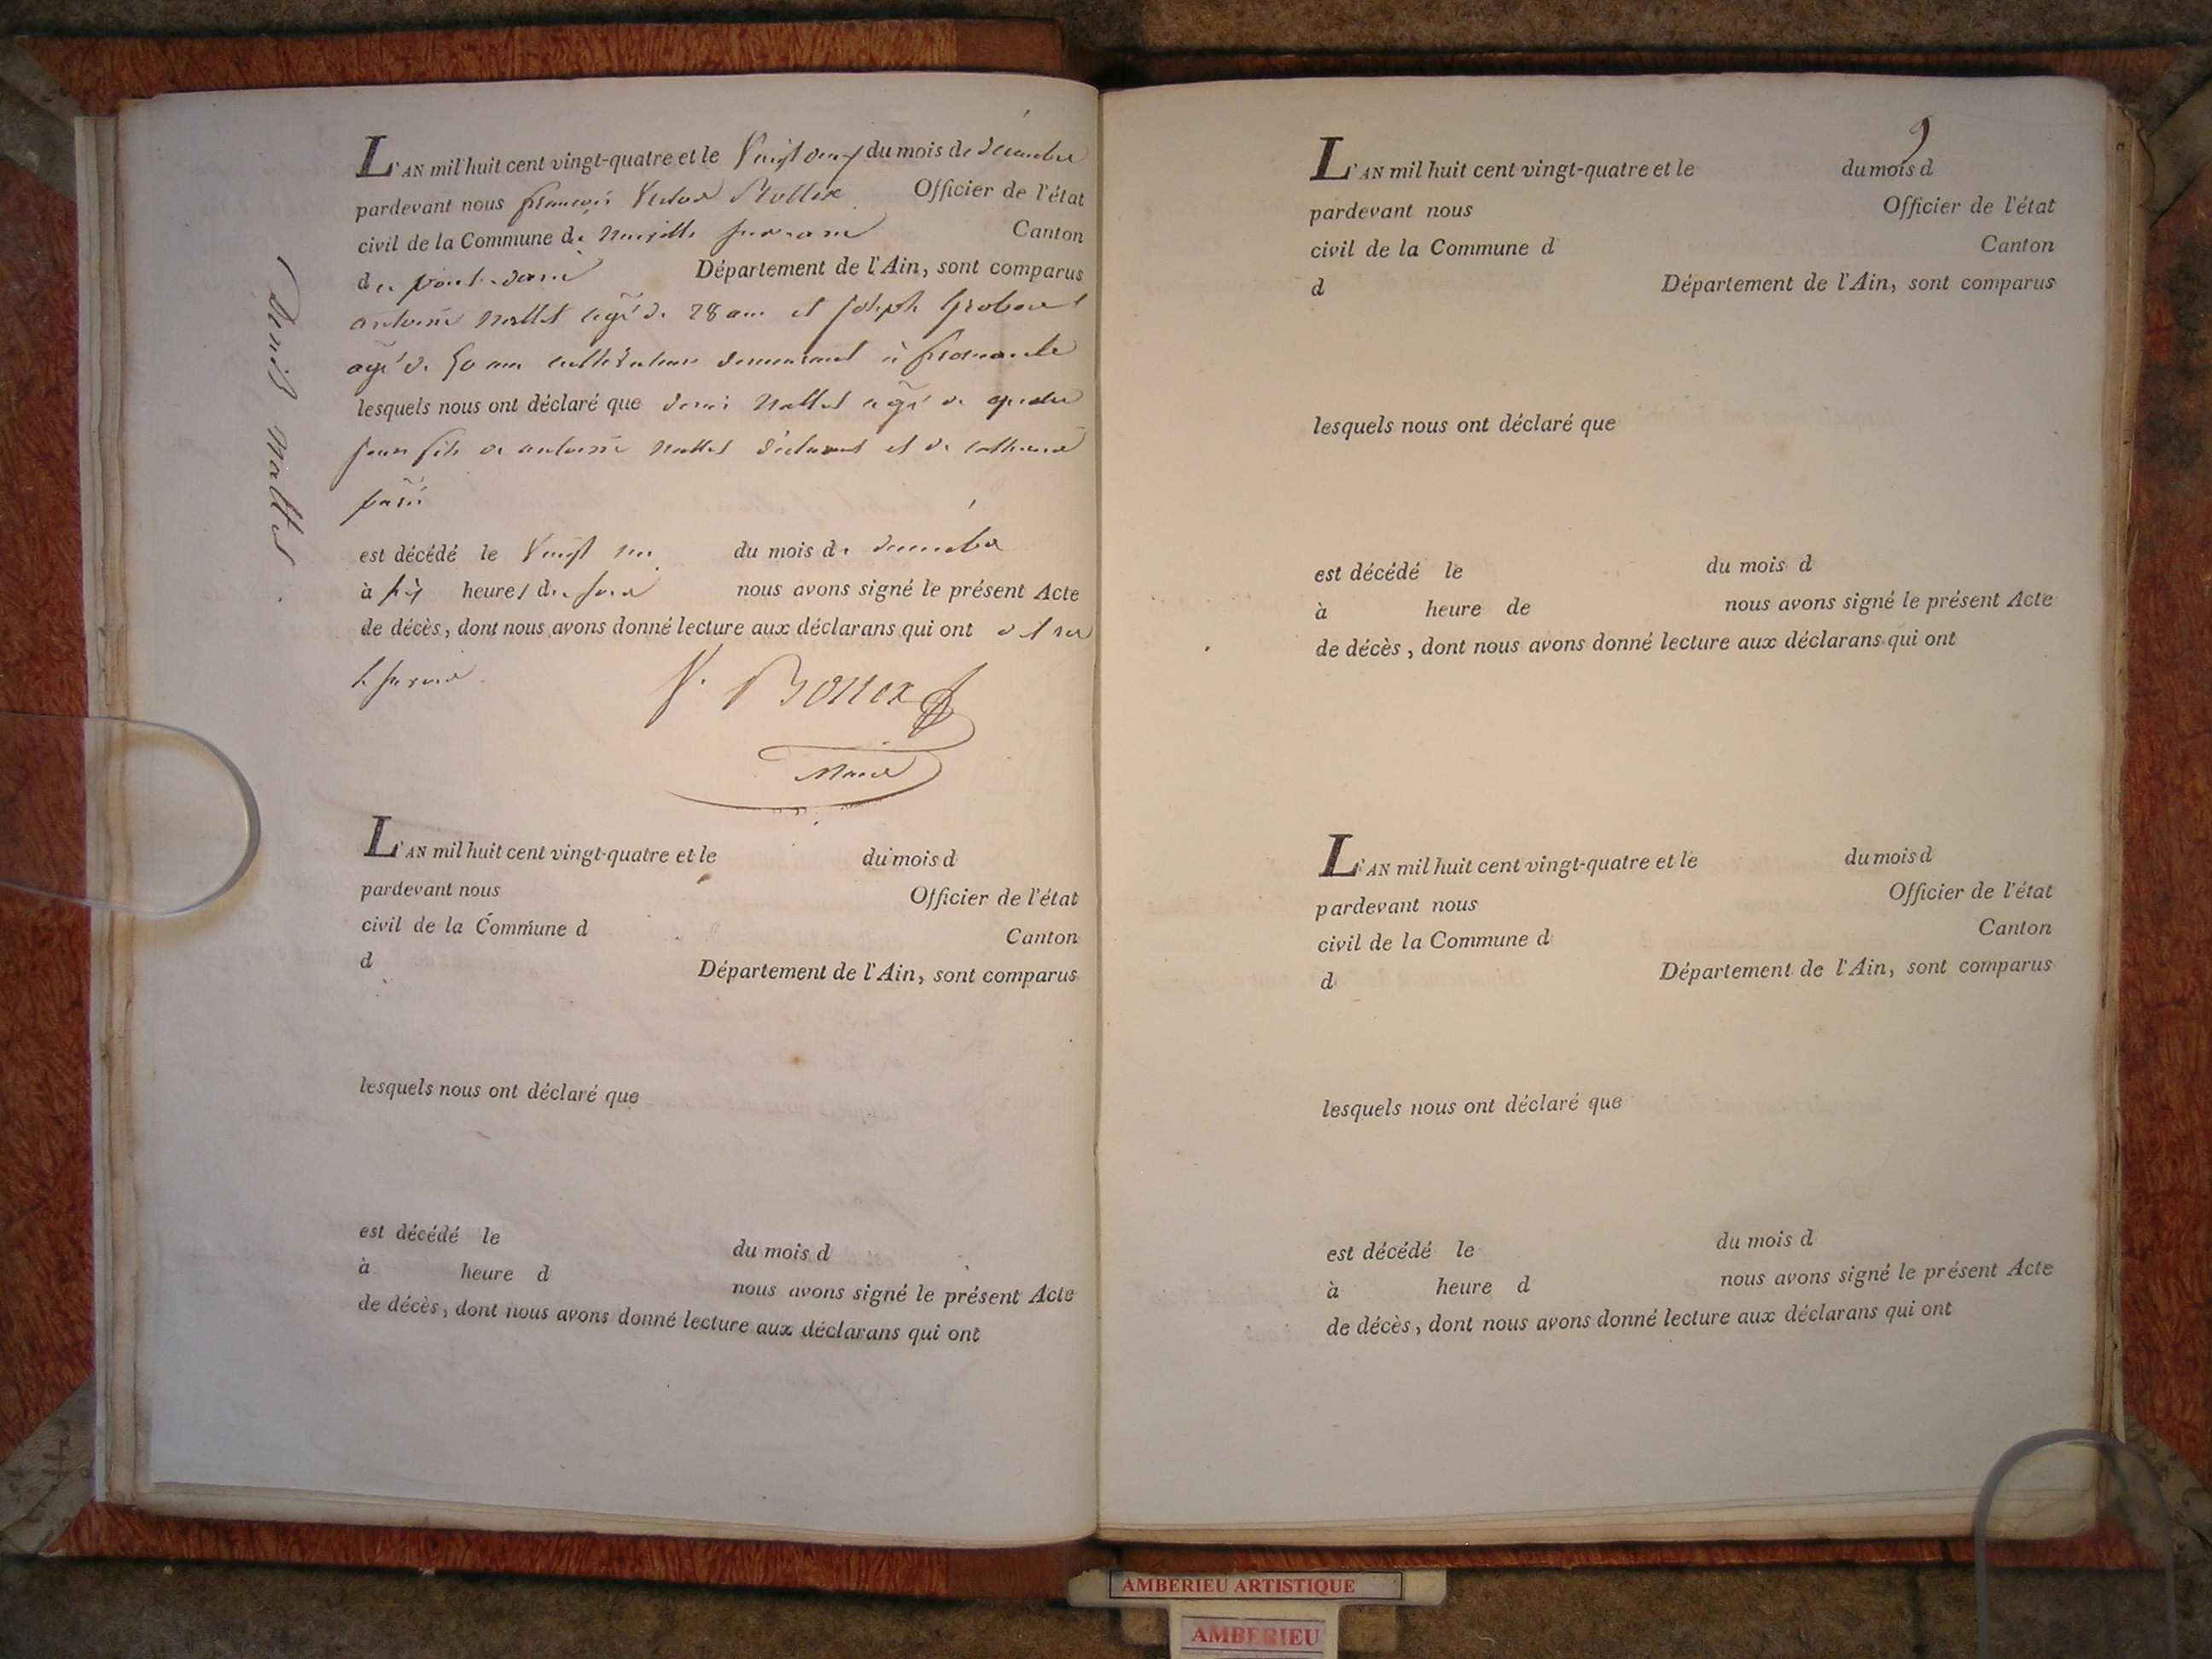 L'AN mil huit cent vingt-quatre et le Vingt deux du mois de décembre
pardevant nous françois Victor Bottex Officier de l'état
civil de la Commune de Neuville sur ain Canton
de pont-dain Département de l'Ain, sont comparus
antoine Mallet agé de 28 ans et Joseph
agé de 50 ans cultivateurs demeurant à fromente
lesquels nous ont déclaré que denis Mallet agé de quatre
jours fils de antoine Mallet déclarant et de catherine
est décédé le Vingt un du mois de décembre
à six heures du soir nous avons signé le présent Acte
de décès, dont nous avons donné lecture aux déclarans qui ont dit ne
le savoir.
V. Bottex
Maire
Denis Mallet.
L'AN mil huit cent vingt-quatre et le du mois d
pardevant nous Officier de l'état
civil de la Commune d Canton
d Département de l'Ain, sont comparus
lesquels nous ont déclaré que
est décédé le du mois d
à heure d nous avons signé le présent Acte
de décès, dont nous avons donné lecture aux déclarans qui ont
9
L'AN mil huit cent vingt-quatre et le du mois d
pardevant nous Officier de l'état
civil de la Commune d Canton
d Département de l'Ain, sont comparus
lesquels nous ont déclaré que
est décédé le du mois d
à heure de nous avons signé le présent Acte
de décès, dont nous avons donné lecture aux déclarans qui ont
L'AN mil huit cent vingt-quatre et le du mois d
pardevant nous Officier de l'état
civil de la Commune d Canton
d Département de l'Ain, sont comparus
lesquels nous ont déclaré que
est décédé le du mois d
à heure d nous avons signé le présent Acte
de décès, dont nous avons donné lecture aux déclarans qui ont
AMBERIEU ARTISTIQUE
AMBERIEU